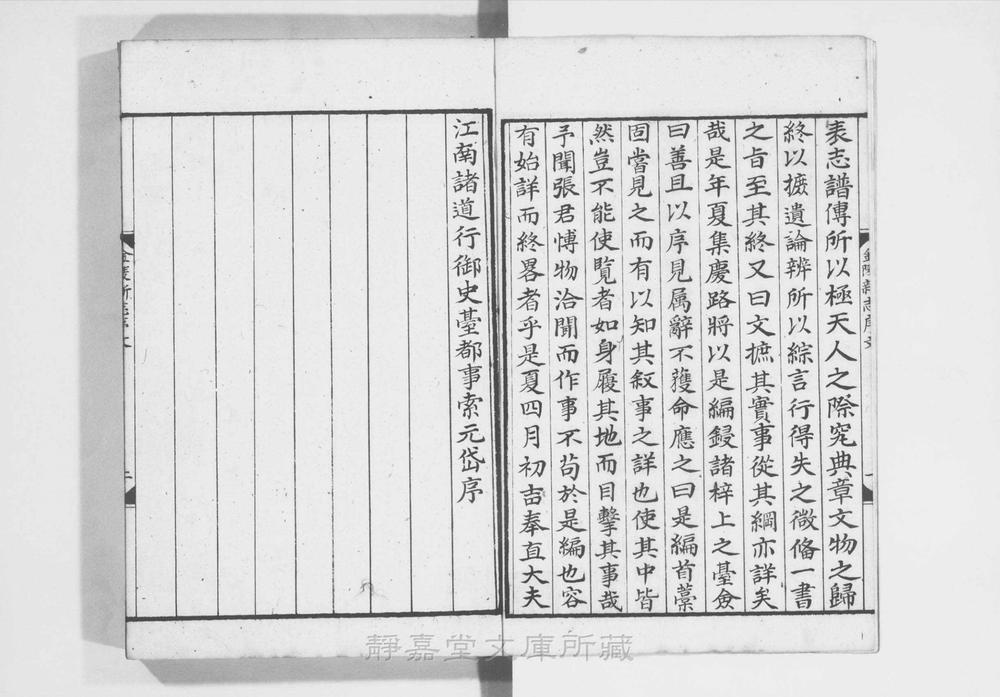 表志譜傳所以極天人之際究典章文物之歸
終以摭遺論辨所以綜言行得失之微偹一書
之㫖至其終又曰文摭其實事從其綱亦詳矣
哉是年夏集慶路將以是編鋟諸梓上之臺僉
曰善且以序見属辭不獲命應之曰是編首藁
固嘗見之而有以知其叙事之詳也使其中皆
然豈不能使覽者如身履其地而目擊其事哉
予聞張君愽物洽聞而作事不苟於是編也容
有始詳而終畧者乎是夏四月初吉奉直大夫
江南諸道行御史臺都事索元岱序
金陵新志序文
一
金陵新志序文
二
靜嘉堂文庫所藏